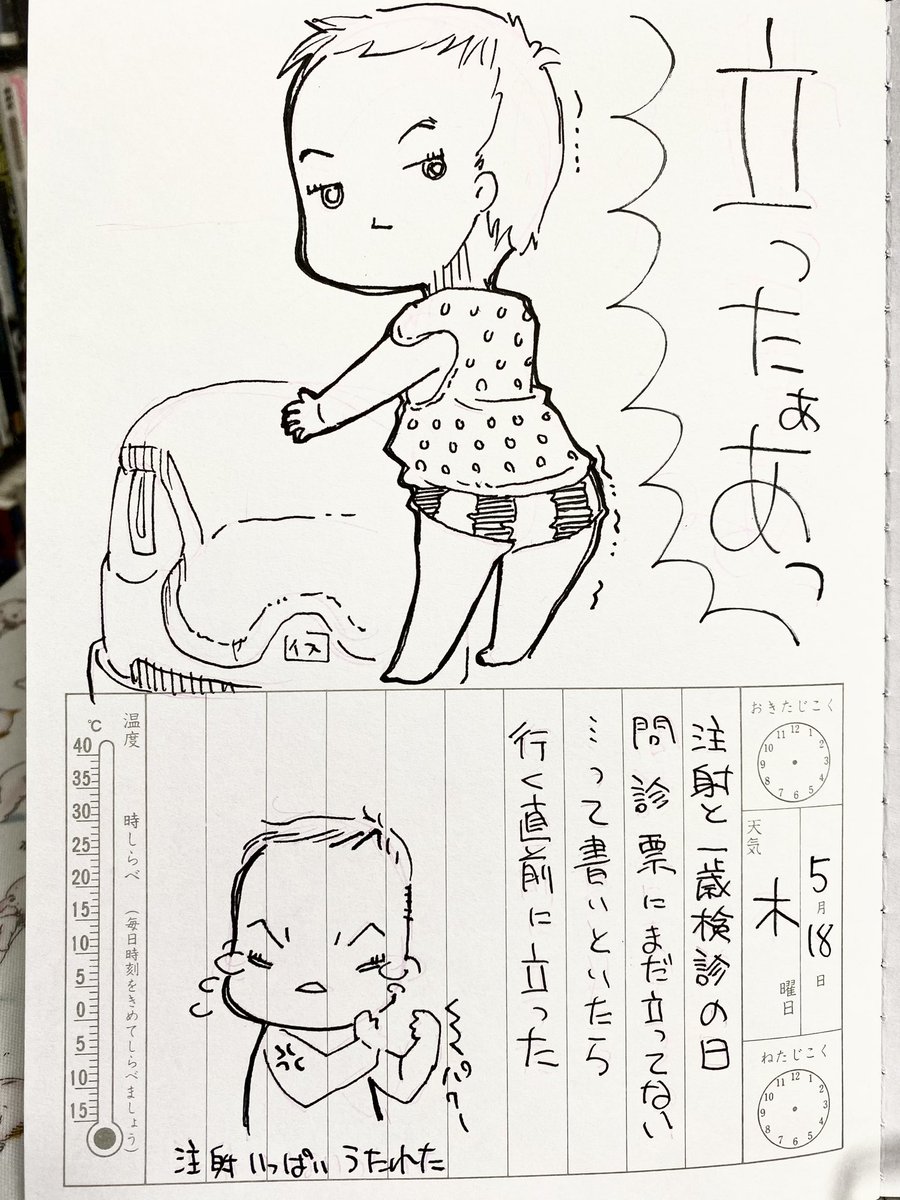 立ったぁあっ
イス
おきたじこく
12 1 2 3 4 5 6 7 8 9 10 11
5月18日
天気
木曜日
ねたじこく
12 1 2 3 4 5 6 7 8 9 10 11
注射と一歳検診の日
問診票にまだ立ってない
…って書いといたら
行く直前に立った
パワー
注射いっぱいうたれた
温度 時しらべ (毎日時刻をきめてしらべましょう)
℃
40
35
30
25
20
15
10
5
0
5
10
15